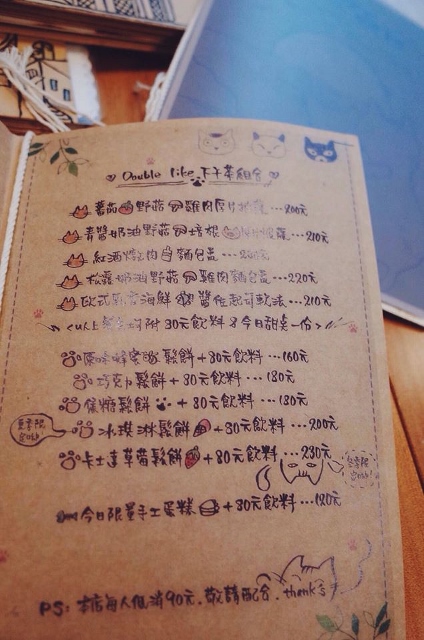 Double like 下午茶組合
蕃茄野菇雞肉厚片披薩...200元
青醬奶油野菇培根厚片披薩...210元
紅酒燉肉麵包盅...
松露奶油野菇雞肉麵包盅...220元
歐式乳酪海鮮醬佐起司軟法...210元
<以上餐點均附30元飲料&今日甜点一份>
原味蜂蜜鬆餅+30元飲料...160元
巧克力鬆餅+30元飲料...180元
焦糖鬆餅+30元飲料...180元
夏季限定
冰淇淋鬆餅+30元飲料...200元
卡士達草莓鬆餅+30元飲料...230元
冬季限定
今日限量手工蛋糕+30元飲料...120元
PS:本店每人低消90元.敬請配合.thanks